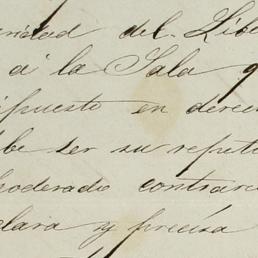 del Libe
á la Sala q
puesto en derec
be ser su repete
poderado contrar
clara y precisa